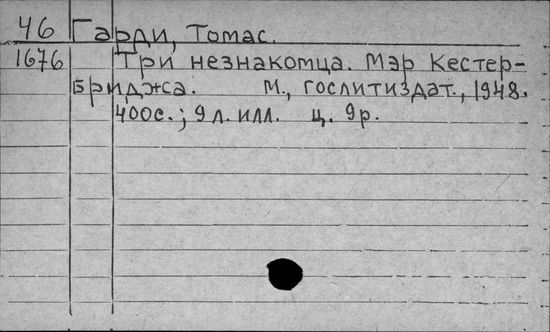 46 Гарди, Томас.
1676 Три незнакомца. Мэр Кестер-
бриджа. М., гослитиздат., 1948.
400с.; 9 л. илл. ц. 9р.